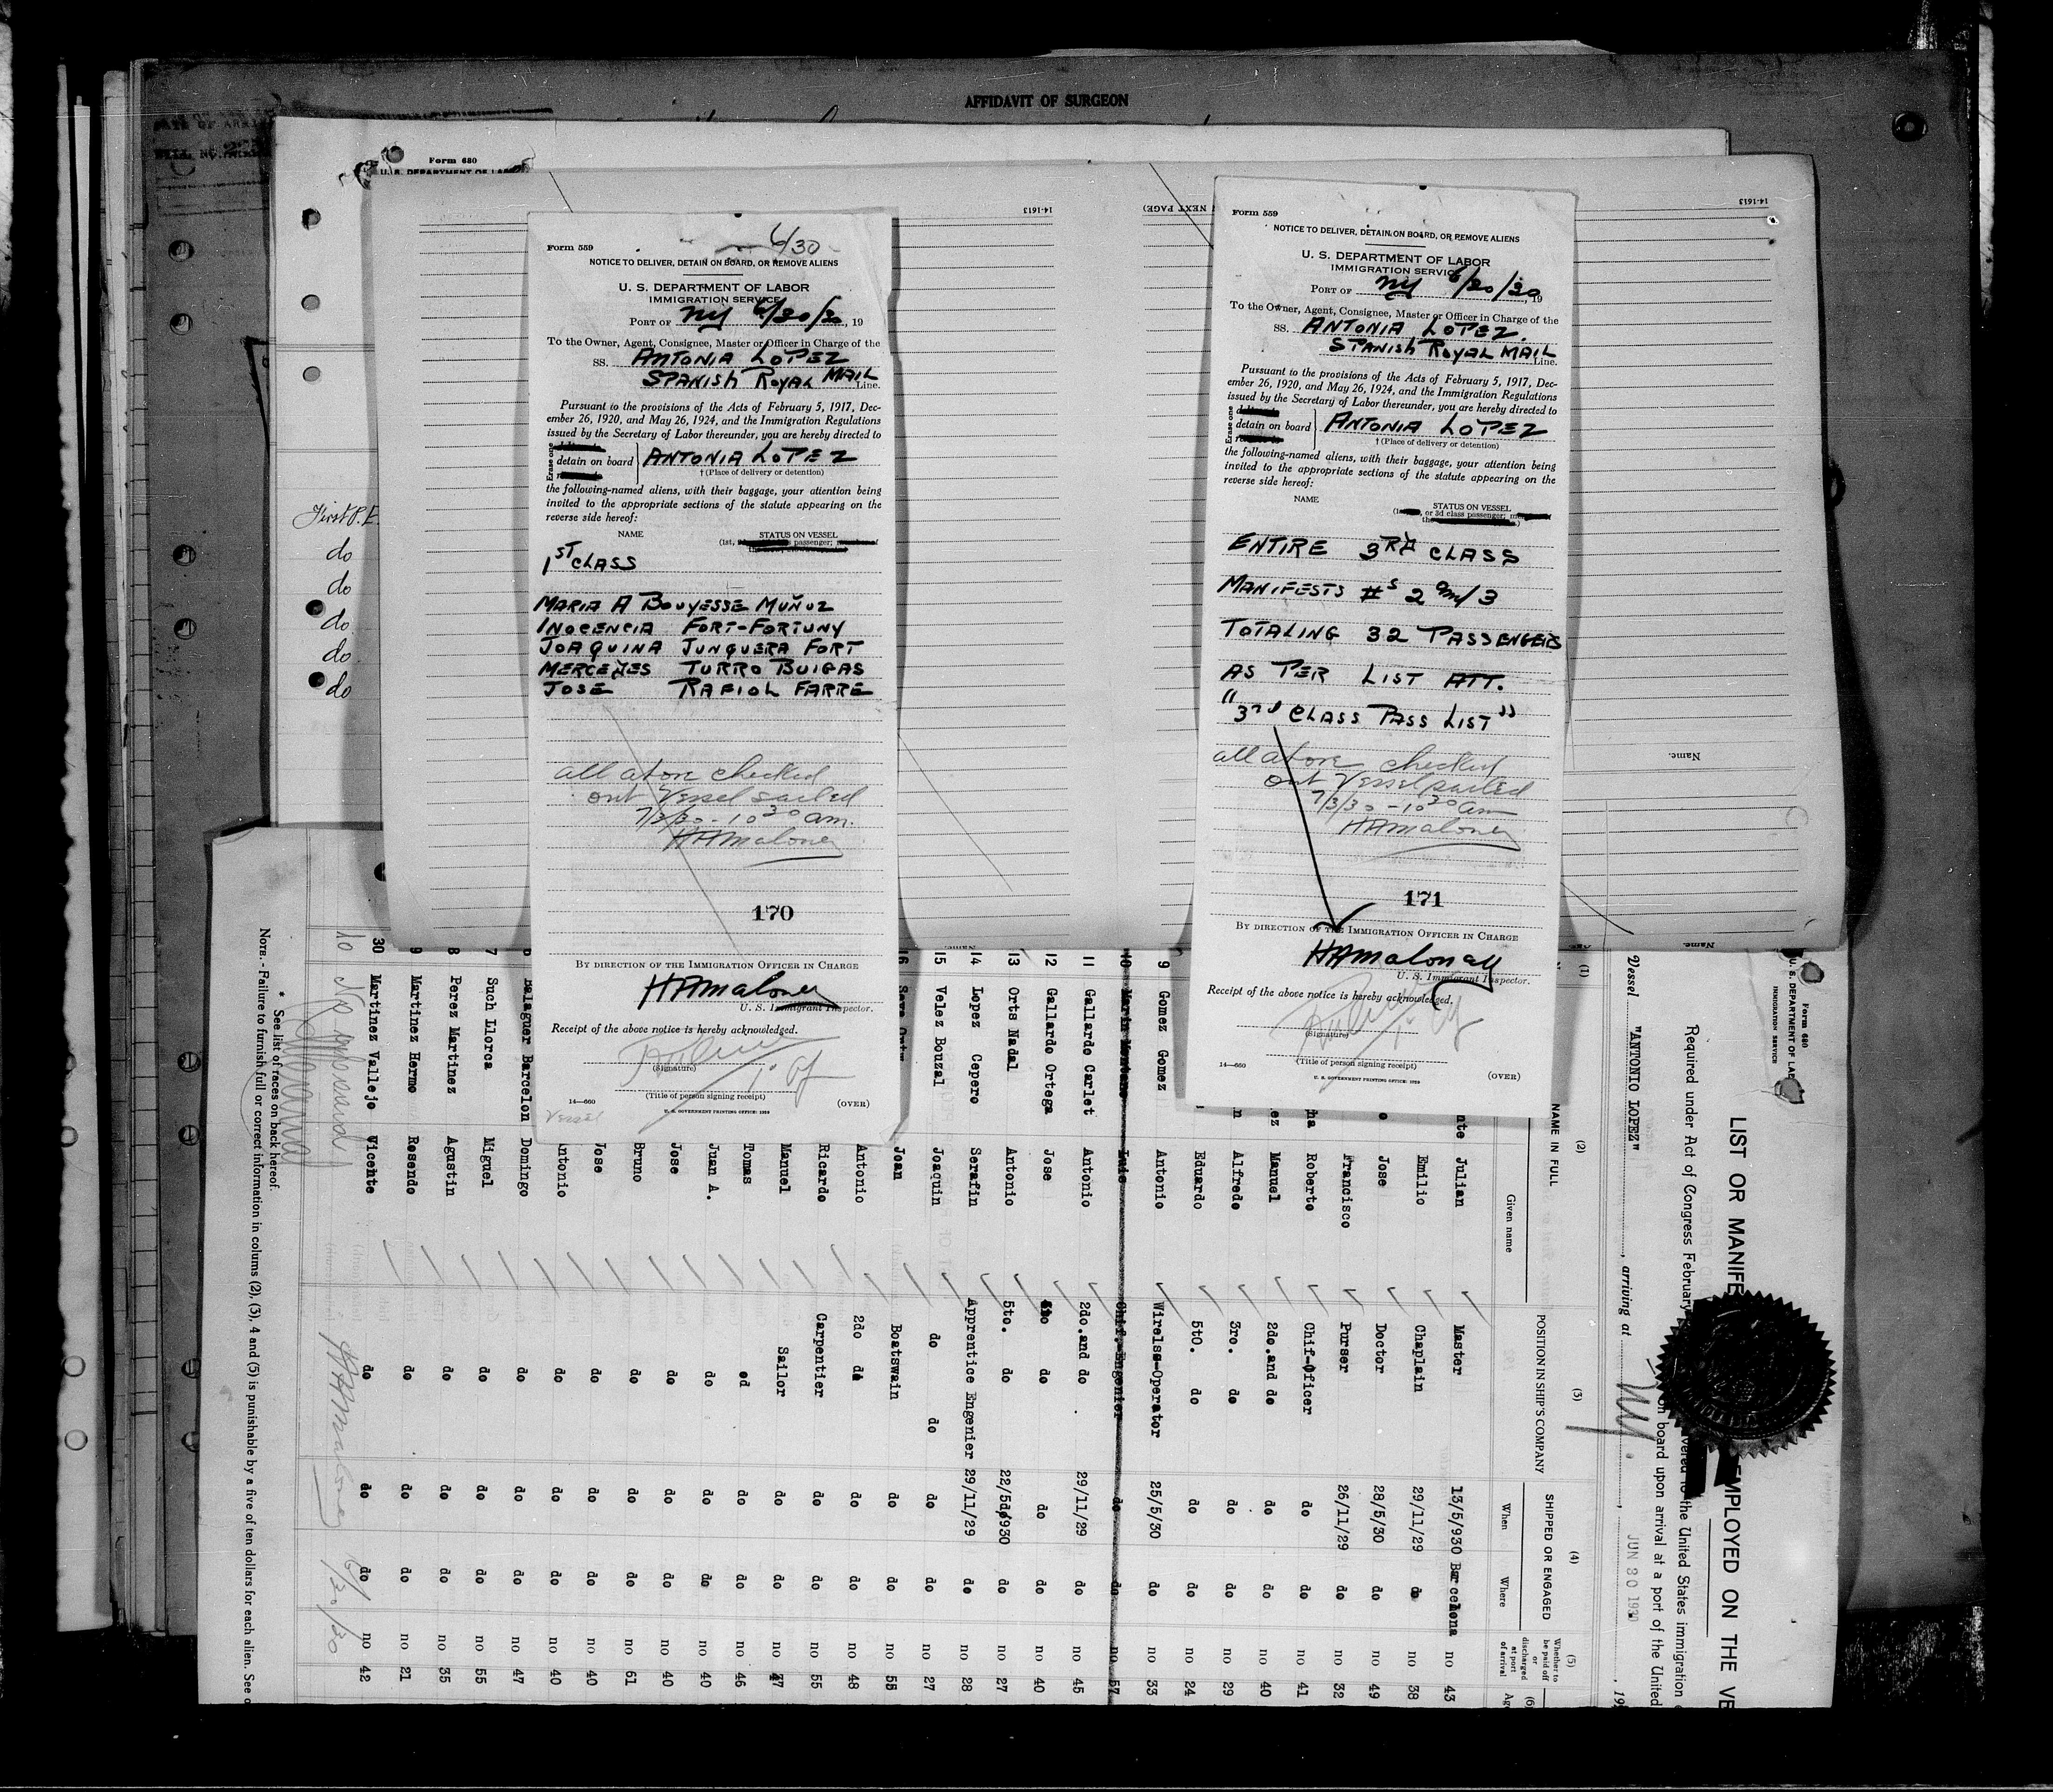 AFFIDAVIT OF SURGEON
Form 680
U. S. DEPARTMENT OF LAB
14-1613
NEXT PAGE)
14-1613
First P. E.
do
do
do
do
do
6/30
Form 559
NOTICE TO DELIVER, DETAIN ON BOARD, OR REMOVE ALIENS
U. S. DEPARTMENT OF LABOR
IMMIGRATION SERVICE
PORT OF NY 6/30/30, 19
To the Owner, Agent, Consignee, Master or Officer in Charge of the
SS. ANTONIA LOPEZ
SPANISH ROYAL MAIL Line.
Pursuant to the provisions of the Acts of February 5, 1917, Dec-
ember 26, 1920, and May 26, 1924, and the Immigration Regulations
issued by the Secretary of Labor thereunder, you are hereby directed to
detain on board ANTONIA LOPEZ
† (Place of delivery or detention)
the following-named aliens, with their baggage, your attention being
invited to the appropriate sections of the statute appearing on the
reverse side hereof:
NAME STATUS ON VESSEL
(1st, passenger;
1ST CLASS
MARIA A BOUYESSE MUÑOZ
INOCENCIA FORT-FORTUNY
JOAQUINA JUNQUERA FORT
MERCEDES TURRO BUIGAS
JOSE RAFIOL FARRE
all above checked
out Vessel sailed
7/3/30 - 10 30 am.
HAMaloney
170
BY DIRECTION OF THE IMMIGRATION OFFICER IN CHARGE
HAMaloney
U. S. Immigrant Inspector.
Receipt of the above notice is hereby acknowledged.
(Signature)
(Title of person signing receipt)
14—660
U. S. GOVERNMENT PRINTING OFFICE: 1929
(OVER)
Vessel
Form 559
NOTICE TO DELIVER, DETAIN ON BOARD, OR REMOVE ALIENS
U. S. DEPARTMENT OF LABOR
IMMIGRATION SERVICE
PORT OF NY 6/30/30, 19
To the Owner, Agent, Consignee, Master or Officer in Charge of the
SS. ANTONIA LOPEZ.
SPANISH ROYAL MAIL Line.
Pursuant to the provisions of the Acts of February 5, 1917, Dec-
ember 26, 1920, and May 26, 1924, and the Immigration Regulations
issued by the Secretary of Labor thereunder, you are hereby directed to
detain on board ANTONIA LOPEZ
† (Place of delivery or detention)
the following-named aliens, with their baggage, your attention being
invited to the appropriate sections of the statute appearing on the
reverse side hereof:
NAME
STATUS ON VESSEL
, or 3d class passenger;
ENTIRE 3RD CLASS
MANIFESTS #S 2 and 3
TOTALING 32 PASSENGERS
AS PER LIST ATT.
"3rd CLASS PASS LIST"
all above checked
out Vessel sailed
7/3/30 - 10 30 am
HAMaloney
171
BY DIRECTION OF THE IMMIGRATION OFFICER IN CHARGE
HAMaloney
U. S. Immigrant Inspector.
Receipt of the above notice is hereby acknowledged.
(Signature)
(Title of person signing receipt)
14—660
U. S. GOVERNMENT PRINTING OFFICE: 1929
(OVER)
Name.
Name.
Form 680
U. S. DEPARTMENT OF LAB
IMMIGRATION SERVICE
LIST OR MANIFE EMPLOYED ON THE VE
Required under Act of Congress February
vered to the United States immigration
on board upon arrival at a port of the United
Vessel "ANTONIO LOPEZ", arriving at NY. JUN 30 1930
(1) (2) (3) (4) (5) (6)
NAME IN FULL
Given name
POSITION IN SHIP'S COMPANY
SHIPPED OR ENGAGED
When Where
Whether to be paid off or discharged at port of arrival
nte Julian Master 13/5/930 Barcelona no 43
Emilio Chaplain 29/11/29 do no 38
Jose Doctor 28/5/30 do no 49
Francisco Purser 26/11/29 do no 32
Roberto Chif-Officer do do no 41
Manuel 2do.and do do do no 40
Alfredo 3ro. do do do no 29
Eduardo 5tO. do do do no 24
9 Gomez Gomez Antonio Wirelss-Operator 25/5/30 do no 33
10 Marin Montano Luis Chif.-Engenier do do no 57
11 Gallardo Carlet Antonio 2do.and do 29/11/29 do no 45
12 Gallardo Ortega Jose do do do no 40
13 Orts Nadal Antonio 5to. do 22/5/930 do no 27
14 Lopez Cepero Serafin Apprentice Engenier 29/11/29 do no 28
15 Velez Bouzal Joaquin do do do do no 27
16 Joan Boatswain do do no 55
Antonio 2do do do do no 48
Ricardo Carpentier do do no 55
Manuel Sailor do do no 47
Tomas ed do do no 46
Juan A. do do do no 40
Jose do do do no 40
Bruno do do do no 61
Jose do do do no 40
Antonio do do do no 40
6 Balaguer Barcelon Domingo do do do no 47
7 Such Llorca Miguel do do do no 55
8 Perez Martinez Agustin do do do no 35
9 Martinez Hermo Rosendo do do do no 21
30 Martinez Vallejo Vicente do do do no 42
HAMaloney 6/30/30
* See list of races on back hereof.
NOTE. - Failure to furnish full or correct information in colums (2), (3), 4 and (5) is punishable by a five of ten dollars for each alien. See